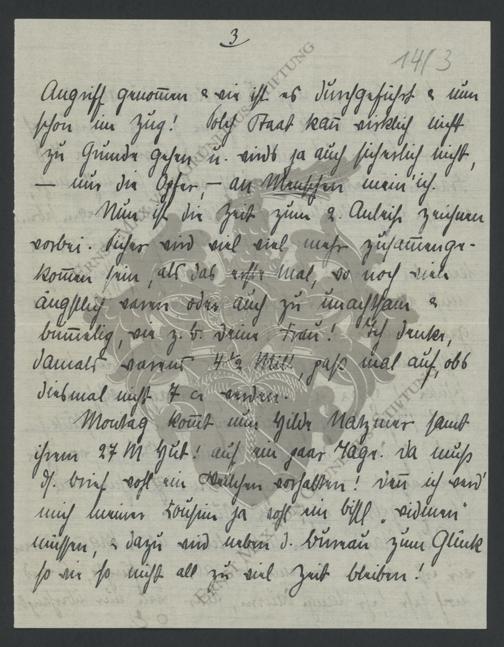 3
14/3
Angriff genommen & wie ist es durchgeführt & nun
schon im Zug! Solch Staat kan̅ wirklich nicht
zu Grunde gehen u. wirds ja auch sicherlich nicht,
— nur die Opfer, — an Menschen mein ich.
Nun ist die Zeit zum 2. Anleihe zeichnen
vorbei. Sicher wird viel viel mehr zusam̅enge-
kom̅en sein, als das erste Mal, wo noch viele
ängstlich waren oder auch zu unachtsam &
bum̅elig, wie z. B. Deine Frau! Ich denke,
damals warens 4 1/2 Mill., paß mal auf, obs
diesmal nicht 7 ca werden.
Montag kom̅t nun Hilde Natzmer samt
ihrem 27 M Hut! auf ein paar Tage. Da muß
d. Brief wohl ein Weilchen vorhalten! Den̅ ich werd'
mich meiner Cousine ja wohl ein bißl „widmen"
müssen, & dazu wird neben d. Bureau zum Glück
so wie so nicht all zu viel Zeit bleiben!
ERNST VON SIEMENS KUNSTSTIFTUNG